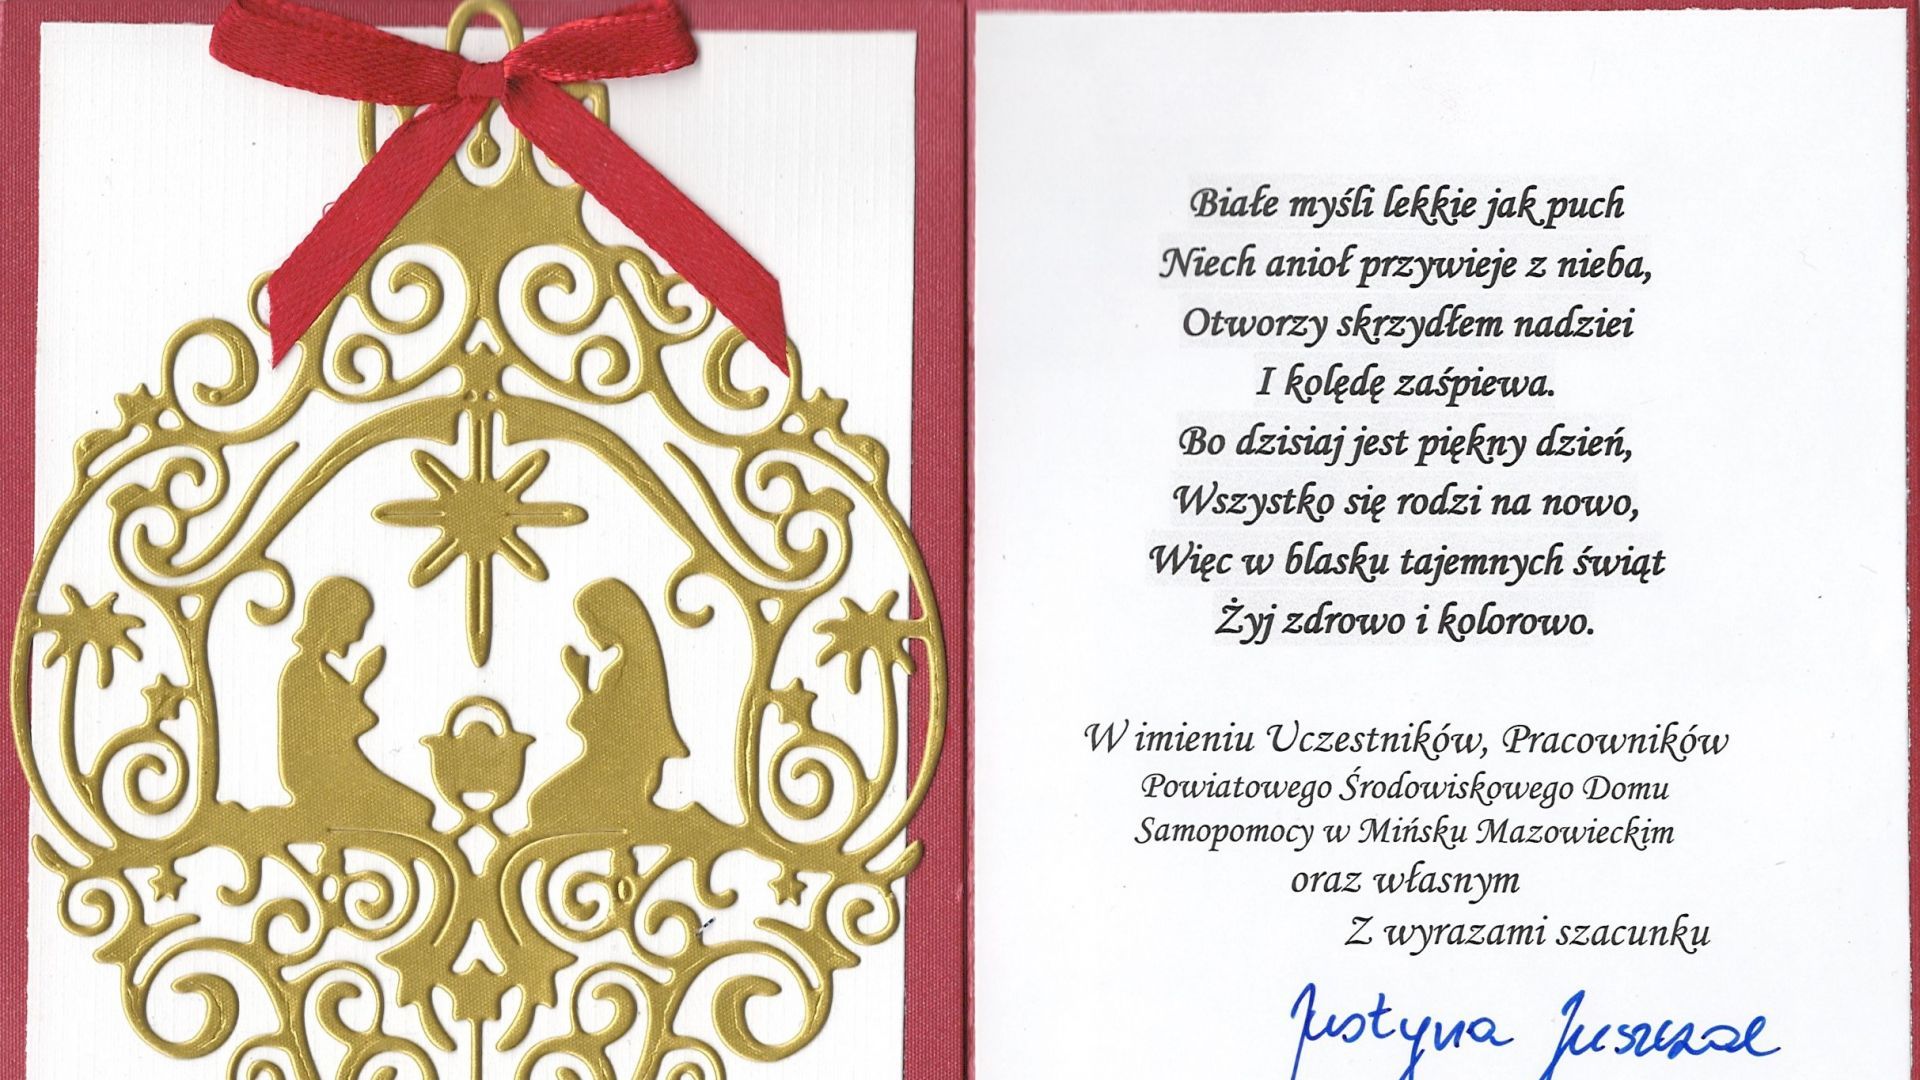 Białe myśli lekkie jak puch
Niech anioł przywieje z nieba,
Otworzy skrzydłem nadziei
I kolędę zaśpiewa.
Bo dzisiaj jest piękny dzień,
Wszystko się rodzi na nowo,
Więc w blasku tajemnych świąt
Żyj zdrowo i kolorowo.
W imieniu Uczestników, Pracowników
Powiatowego Środowiskowego Domu
Samopomocy w Mińsku Mazowieckim
oraz własnym
Z wyrazami szacunku
Justyna